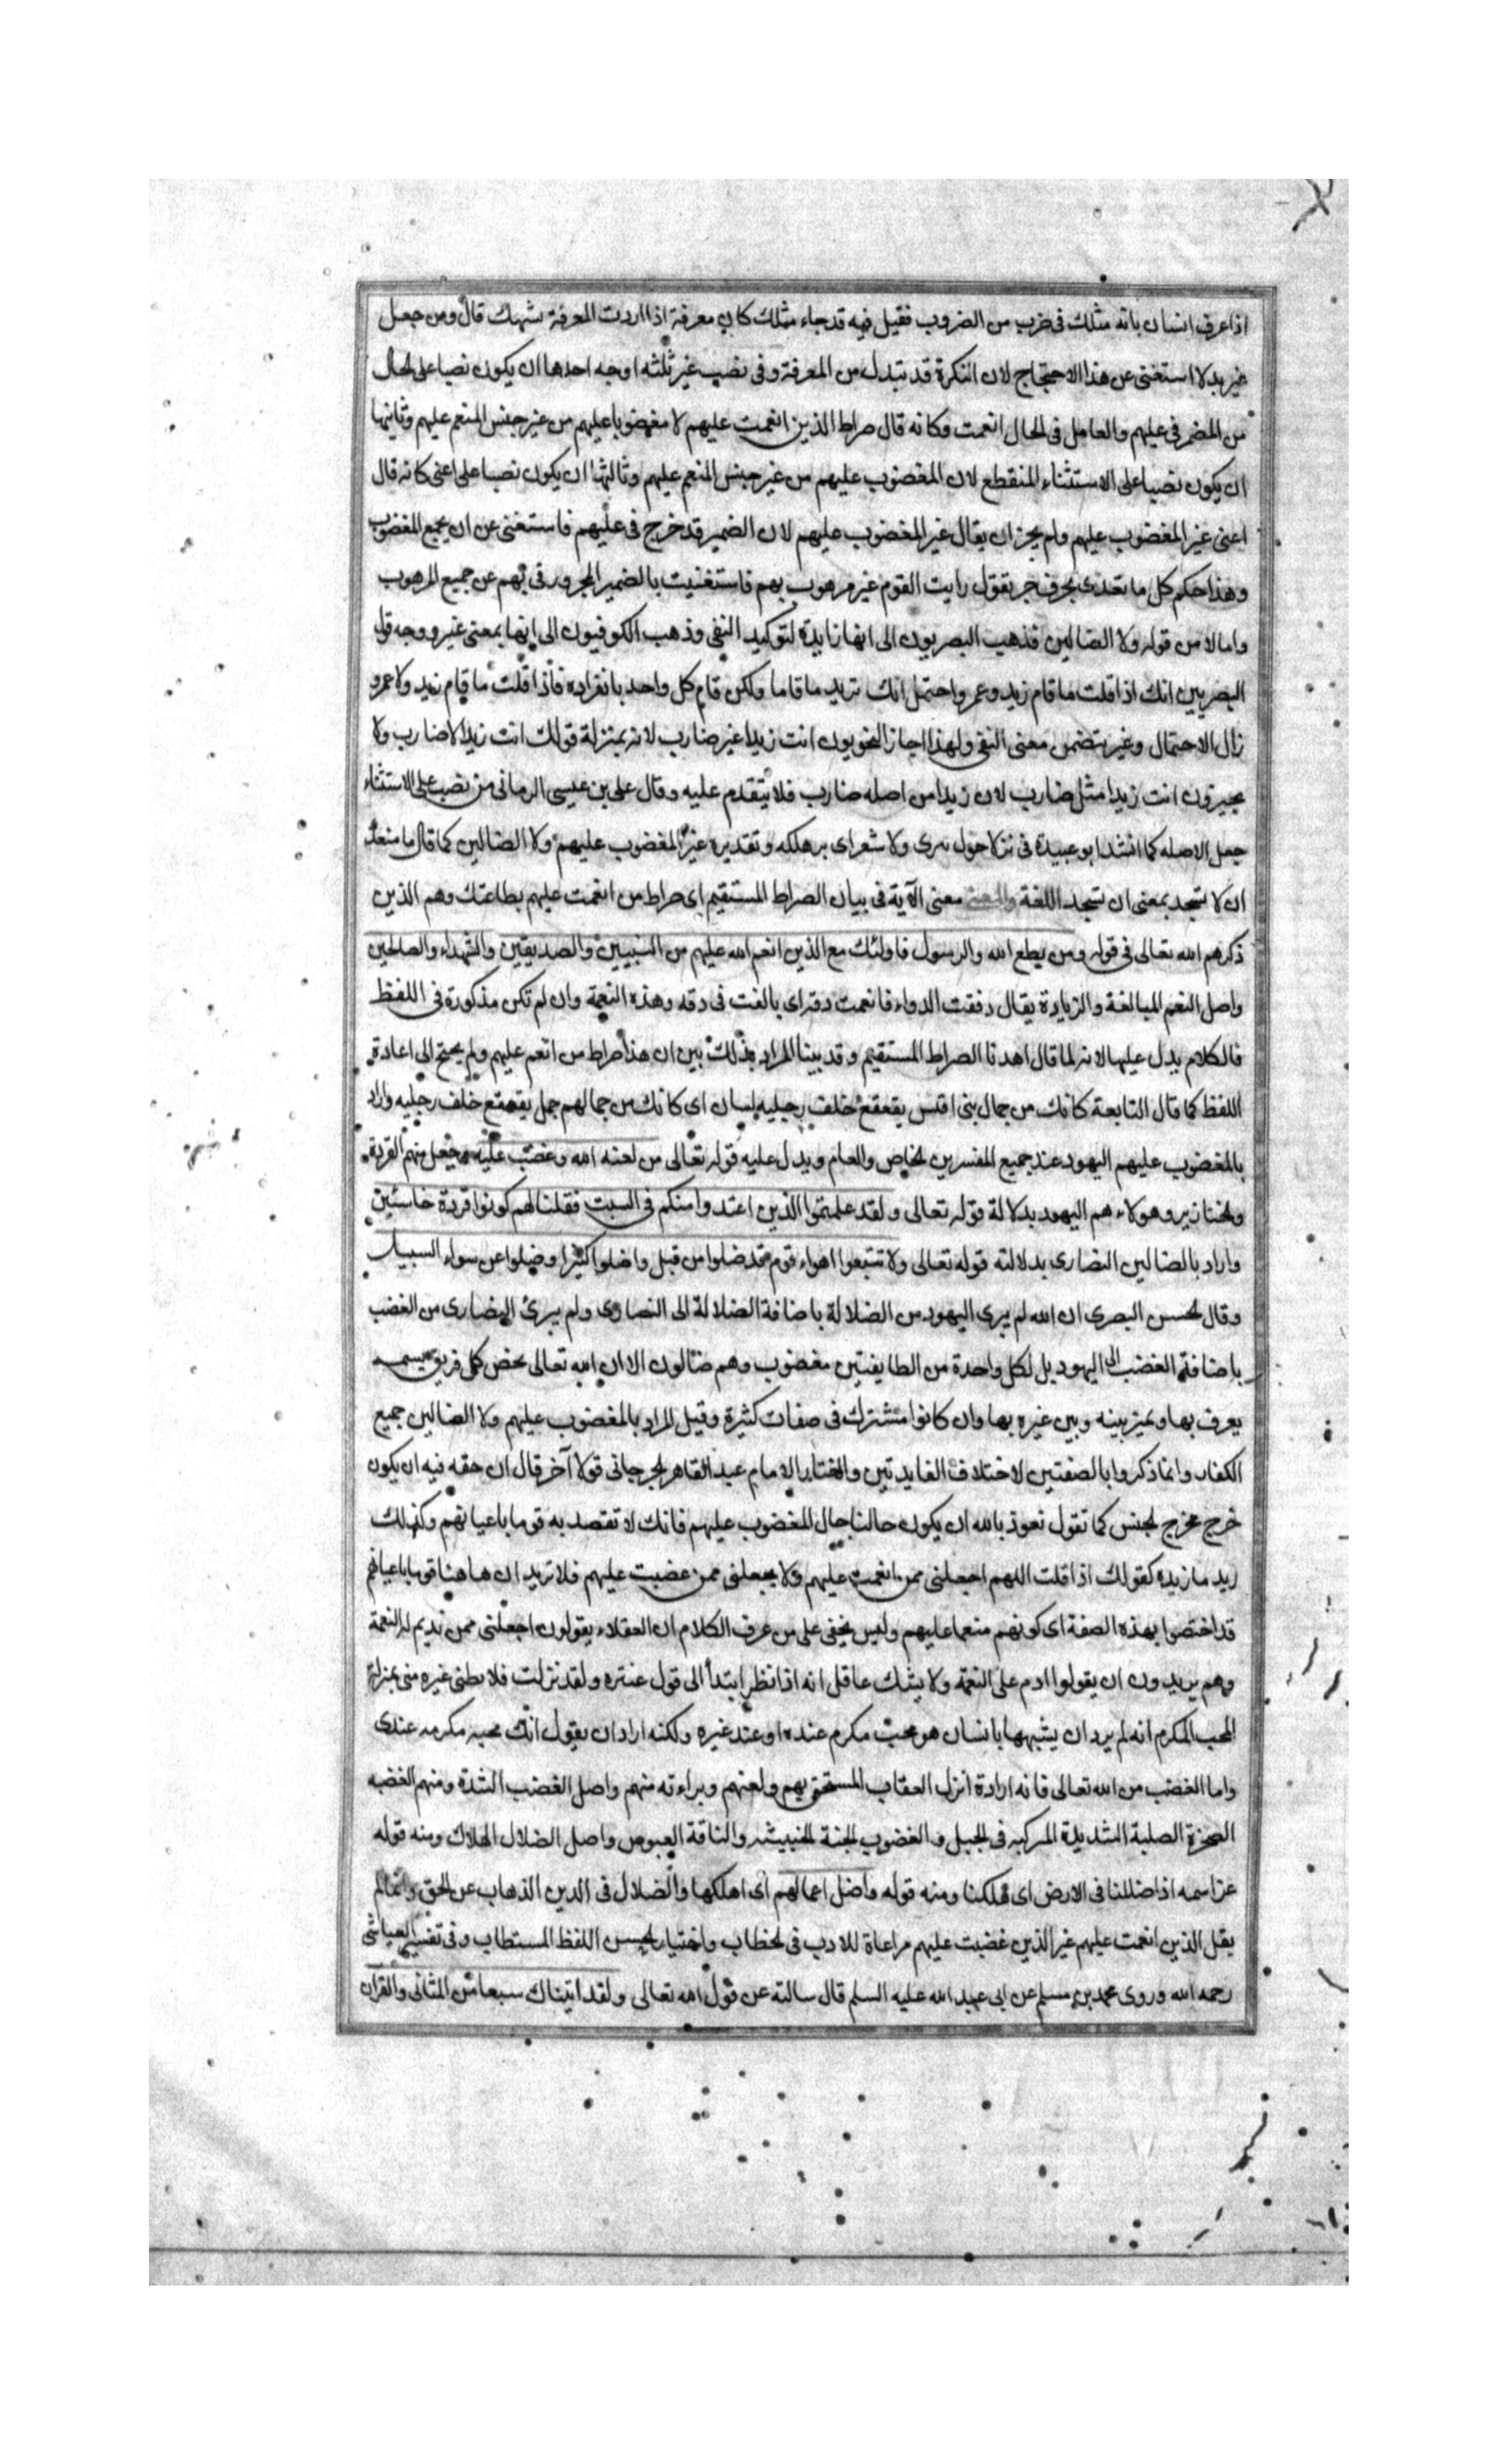 اذا عرف انسان بانه مثلك فى ضرب من الضروب فقيل فيه قد جاء مثلك كان معرفة اذا اردت المعرفة بشبهك قال ومن جعل
غير بدلا استغنى عن هذا الاحتجاج لان النكرة قد تبدل من المعرفة وفى نصب غير ثلثه اوجه احدها ان يكون نصبا على الحال
من المضمر فى عليهم والعامل فى الحال انعمت وكانه قال صراط الذين انعمت عليهم لا مغضوبا عليهم من غير جنس المنعم عليهم وثانيها
ان يكون نصبا على الاستثناء المنقطع لان المغضوب عليهم من غير جنس المنعم عليهم وثالثها ان يكون نصبا على اعنى كانه قال
اعنى غير المغضوب عليهم ولم يجز ان يقال غير المغضوب عليهم لان الضمير قد خرج فى عليهم فاستغنى عن ان يجمع المغضوب
وهذا حكم كل ما تعدى بحرف جر تقول رايت القوم غير مرهوب بهم فاستغنيت بالضمير المجرور فى بهم عن جميع المرهوب
واما لا من قوله ولا الضالين فذهب البصريون الى انها زايدة لتوكيد النفى وذهب الكوفيون الى انها بمعنى غير ووجه قول
البصريين انك اذا قلت ما قام زيد وعمرو احتمل انك تريد ما قاما ولكن قام كل واحد بانفراده فاذا قلت ما قام زيد ولا عمرو
زال الاحتمال وغير يتضمن معنى النفى ولهذا اجاز النحويون انت زيدا غير ضارب لانه بمنزلة قولك انت زيدا لا ضارب ولا
يجيزون انت زيدا مثل ضارب لان زيدا من اصله ضارب فلا يتقدم عليه وقال على بن عيسى الرمانى من نصب على الاستثناء
جعل لا صله كما انشد ابو عبيدة فى بئر لا حول سرى ولا شعر اى بر هلكه وتقديره غير المغضوب عليهم ولا الضالين كما قال ما منعك
ان لا تسجد بمعنى ان تسجد اللغة معنى الآية فى بيان الصراط المستقيم اى صراط من انعمت عليهم بطاعتك وهم الذين
ذكرهم الله تعالى فى قوله ومن يطع الله والرسول فاولئك مع الذين انعم الله عليهم من النبيين والصديقين والشهداء والصالحين
واصل النعم المبالغة والزيادة يقال دققت الدواء فانعمت دقه اى بالغت فى دقه وهذه النعمة وان لم تكن مذكورة فى اللفظ
فالكلام يدل عليها لانه لما قال اهدنا الصراط المستقيم وقد بينا المراد بذلك بين ان هذا صراط من انعم عليهم ولم يحتج الى اعادة
اللفظ كما قال النابعة كانك من جمال بنى اقيس يقعقع خلف رجليه لسان اى كانك من جمالهم جمل يقعقع خلف رجليه واراد
بالمغضوب عليهم اليهود عند جميع المفسرين الخاص والعام ويدل عليه قوله تعالى من لعنه الله وغضب عليه وجعل منهم القردة
والخنازير وهولاء هم اليهود بدلالة قوله تعالى ولقد علمتم الذين اعتدوا منكم فى السبت فقلنا لهم كونوا قردة خاسئين
واراد بالضالين النصارى بدلالته قوله تعالى ولا تتبعوا اهواء قوم قد ضلوا من قبل واضلوا كثيرا وضلوا عن سواء السبيل
وقال الحسن البصرى ان الله لم يبرى اليهود من الضلالة باضافة الضلالة الى النصارى ولم يبرئ النصارى من الغضب
باضافة الغضب الى اليهود بل لكل واحدة من الطايفتين مغضوب وهم ضالون الا ان الله تعالى يخص كل فريق بسمه
يعرف بها ويميز بينه وبين غيره بها وان كانوا مشترك فى صفات كثيرة وقيل المراد بالمغضوب عليهم ولا الضالين جميع
الكفار وانما ذكروا بالصفتين لاختلاف الفايدتين واختار الامام عبد القاهر الجرجانى قولا آخر قال ان حقه فيه ان يكون
خرج مخرج الجنس كما تقول نعوذ بالله ان يكون حالنا حال المغضوب عليهم فانك لا تقصد به قوما باعيانهم وكذلك
ريد مازيده كقولك اذا قلت اللهم اجعلنى ممن انعمت عليهم ولا تجعلنى ممن غضبت عليهم فلا تريد ان هاهنا قوما باعيانهم
قد اختصوا بهذه الصفة اى كونهم منعما عليهم وليس يخفى على من عرف الكلام ان العقلاء يقولون اجعلنى ممن تديم له النعمة
وهم يريدون ان يقولوا ادم على النعمة ولا يشك عاقل انه اذا نظر ابتدأ الى قول عنتره ولقد نزلت فلا تظنى غيره منى بمنزلة
المحب المكرم انه لم يرد ان يشبهها بانسان هو محب مكرم عنده او عند غيره ولكنه اراد ان يقول انك محبه مكرمه عندى
واما الغضب من الله تعالى فانه ارادة انزل العقاب المستحق بهم ولعنهم وبراءته منهم واصل الغضب الشدة ومنهم الغضبه
الصخرة الصلبة الشديدة المركبه فى الجبل والغضوب الحية الخبيثه والناقة العبوس واصل الضلال الهلاك ومنه قوله
عز اسمه اذا ضللنا فى الارض اى هلكنا ومنه قوله واضل اعمالهم اى اهلكها والضلال فى الدين الذهاب عن الحق وانما لم
يقل الذين انعمت عليهم غير الذين غضبت عليهم مراعاة للادب فى الخطاب واختيار الحسن اللفظ المستطاب وفى تفسير العياشى
رحمه الله وروى محمد بن مسلم عن ابى عبد الله عليه السلم قال سالته عن قول الله تعالى ولقد اتيناك سبعا من المثانى والقرآن